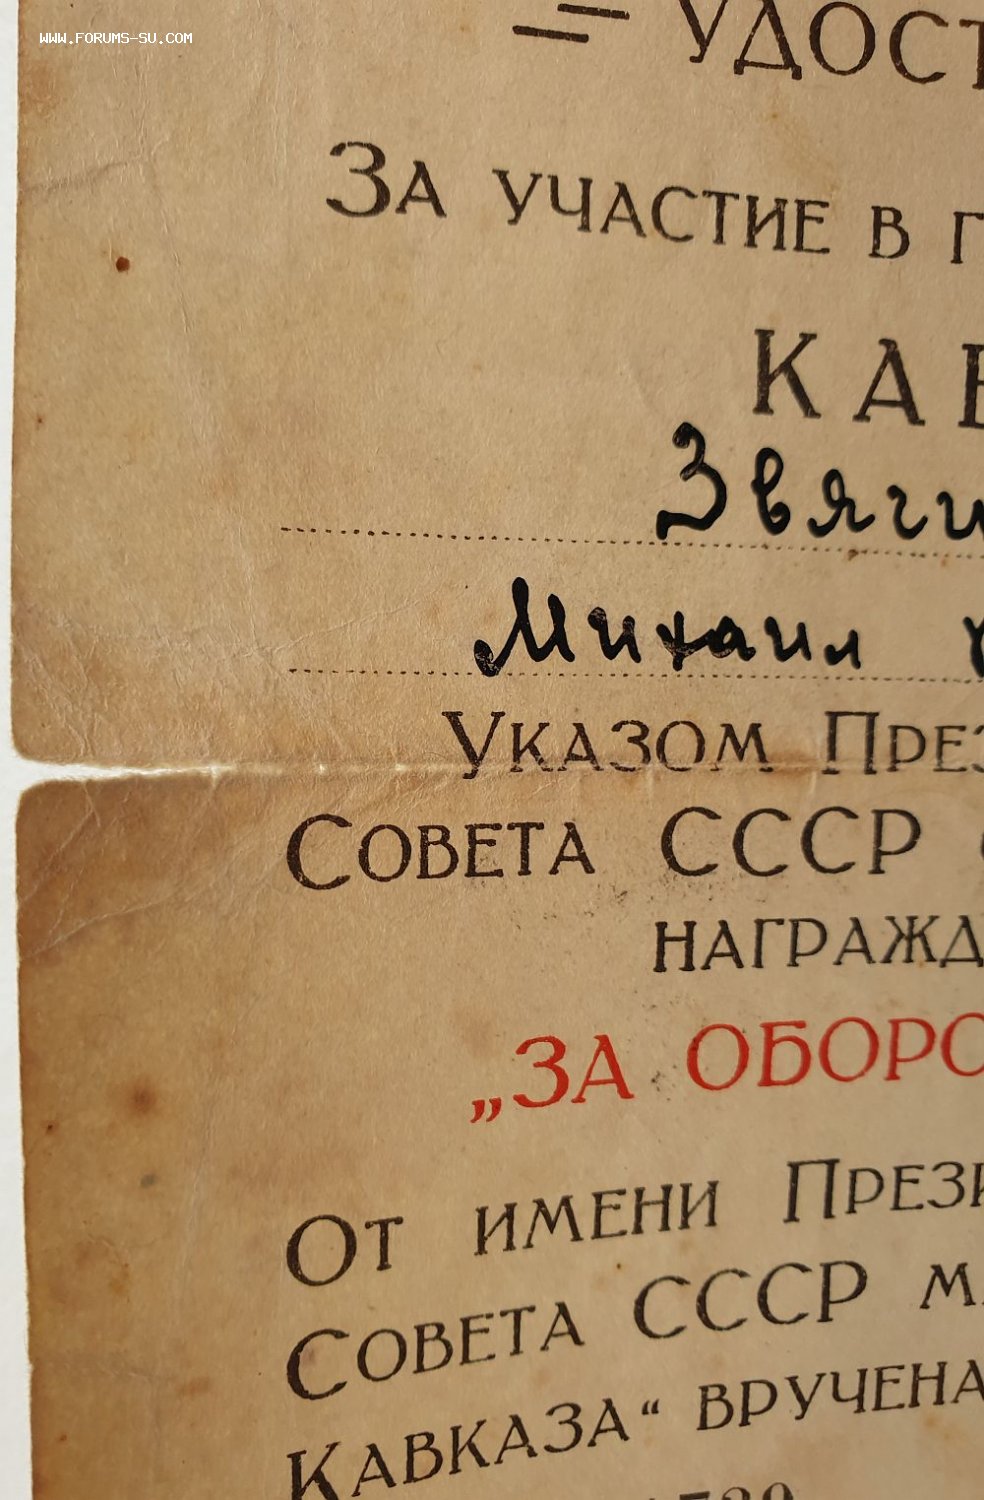 WWW.FORUMS-SU.COM
УДОСТ
ЗА УЧАСТИЕ В Г
КАВ
Звяги
Михаил
УКАЗОМ ПРЕЗ
СОВЕТА СССР
НАГРАЖД
„ЗА ОБОРО
ОТ ИМЕНИ ПРЕЗИ
СОВЕТА СССР М
КАВКАЗА“ ВРУЧЕНА